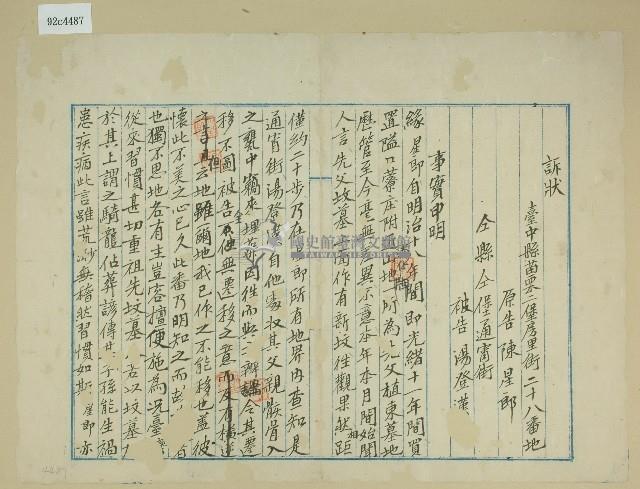 92c4487
訴狀
臺中縣苗栗二堡房里街二十八番地
原告 陳星郎
仝縣仝堡通霄街
被告 湯登漢
事實申明
緣星郎自明治十八年間即光緒十年間買
置隘口藔庄附近山地一所為先父植東墓地
歷管至今毫無異示意本年本月間始聞
人言先父故墓有作有新坟徃觀果然相距
僅約二十步乃在星郎所有地界內查知是
通宵街湯登漢自他處收其父親骸骨入
之甕中竊來埋
移不圖被告不但無遷移之意而反有
云地雖爾地我已作之不能移也蓋彼
懷此不美之心已久此番乃明知之而
也獨不思地各有主豈容擅便施為況臺
從來習慣甚切重祖先坟墓
於其上謂之騎龍佔葬諺傳其子孫能生禍
患疾病此言雖荒渺無稽狀習慣如斯星郎亦
國史館臺灣文獻館